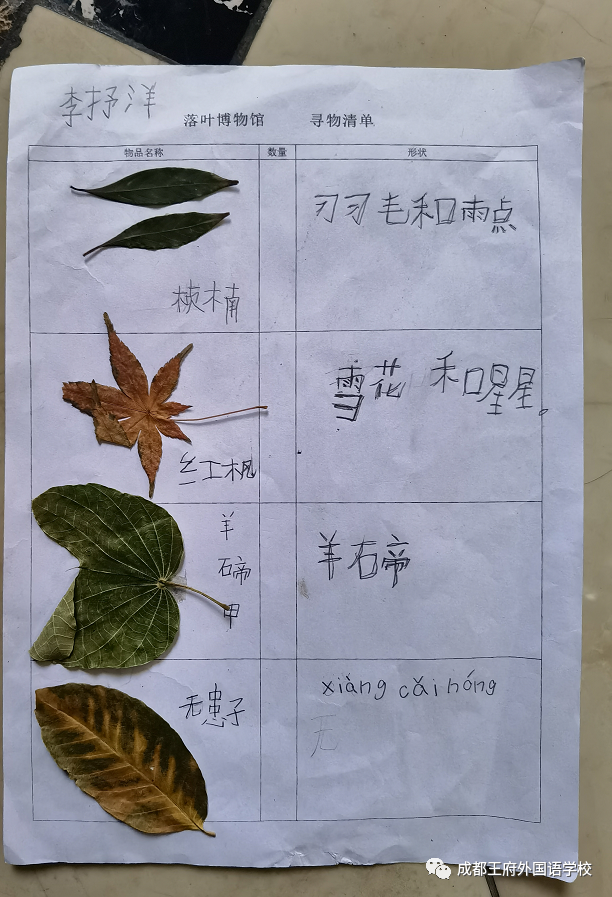 李抒洋
落叶博物馆 寻物清单
物品名称 数量 形状
羽毛和雨点
楠
雪花和星星。
红枫
羊
蹄
甲
羊蹄
无患子
xiàng cǎi hóng
无
成都王府外国语学校